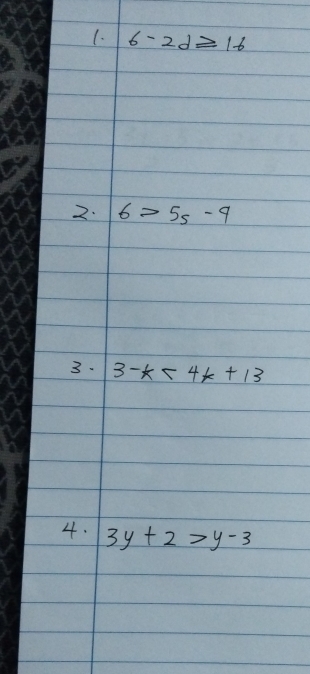 1. 6-2d≥16
2. 6>5s-9
3. 3-k<4k+13
4. 3y+2>y-3